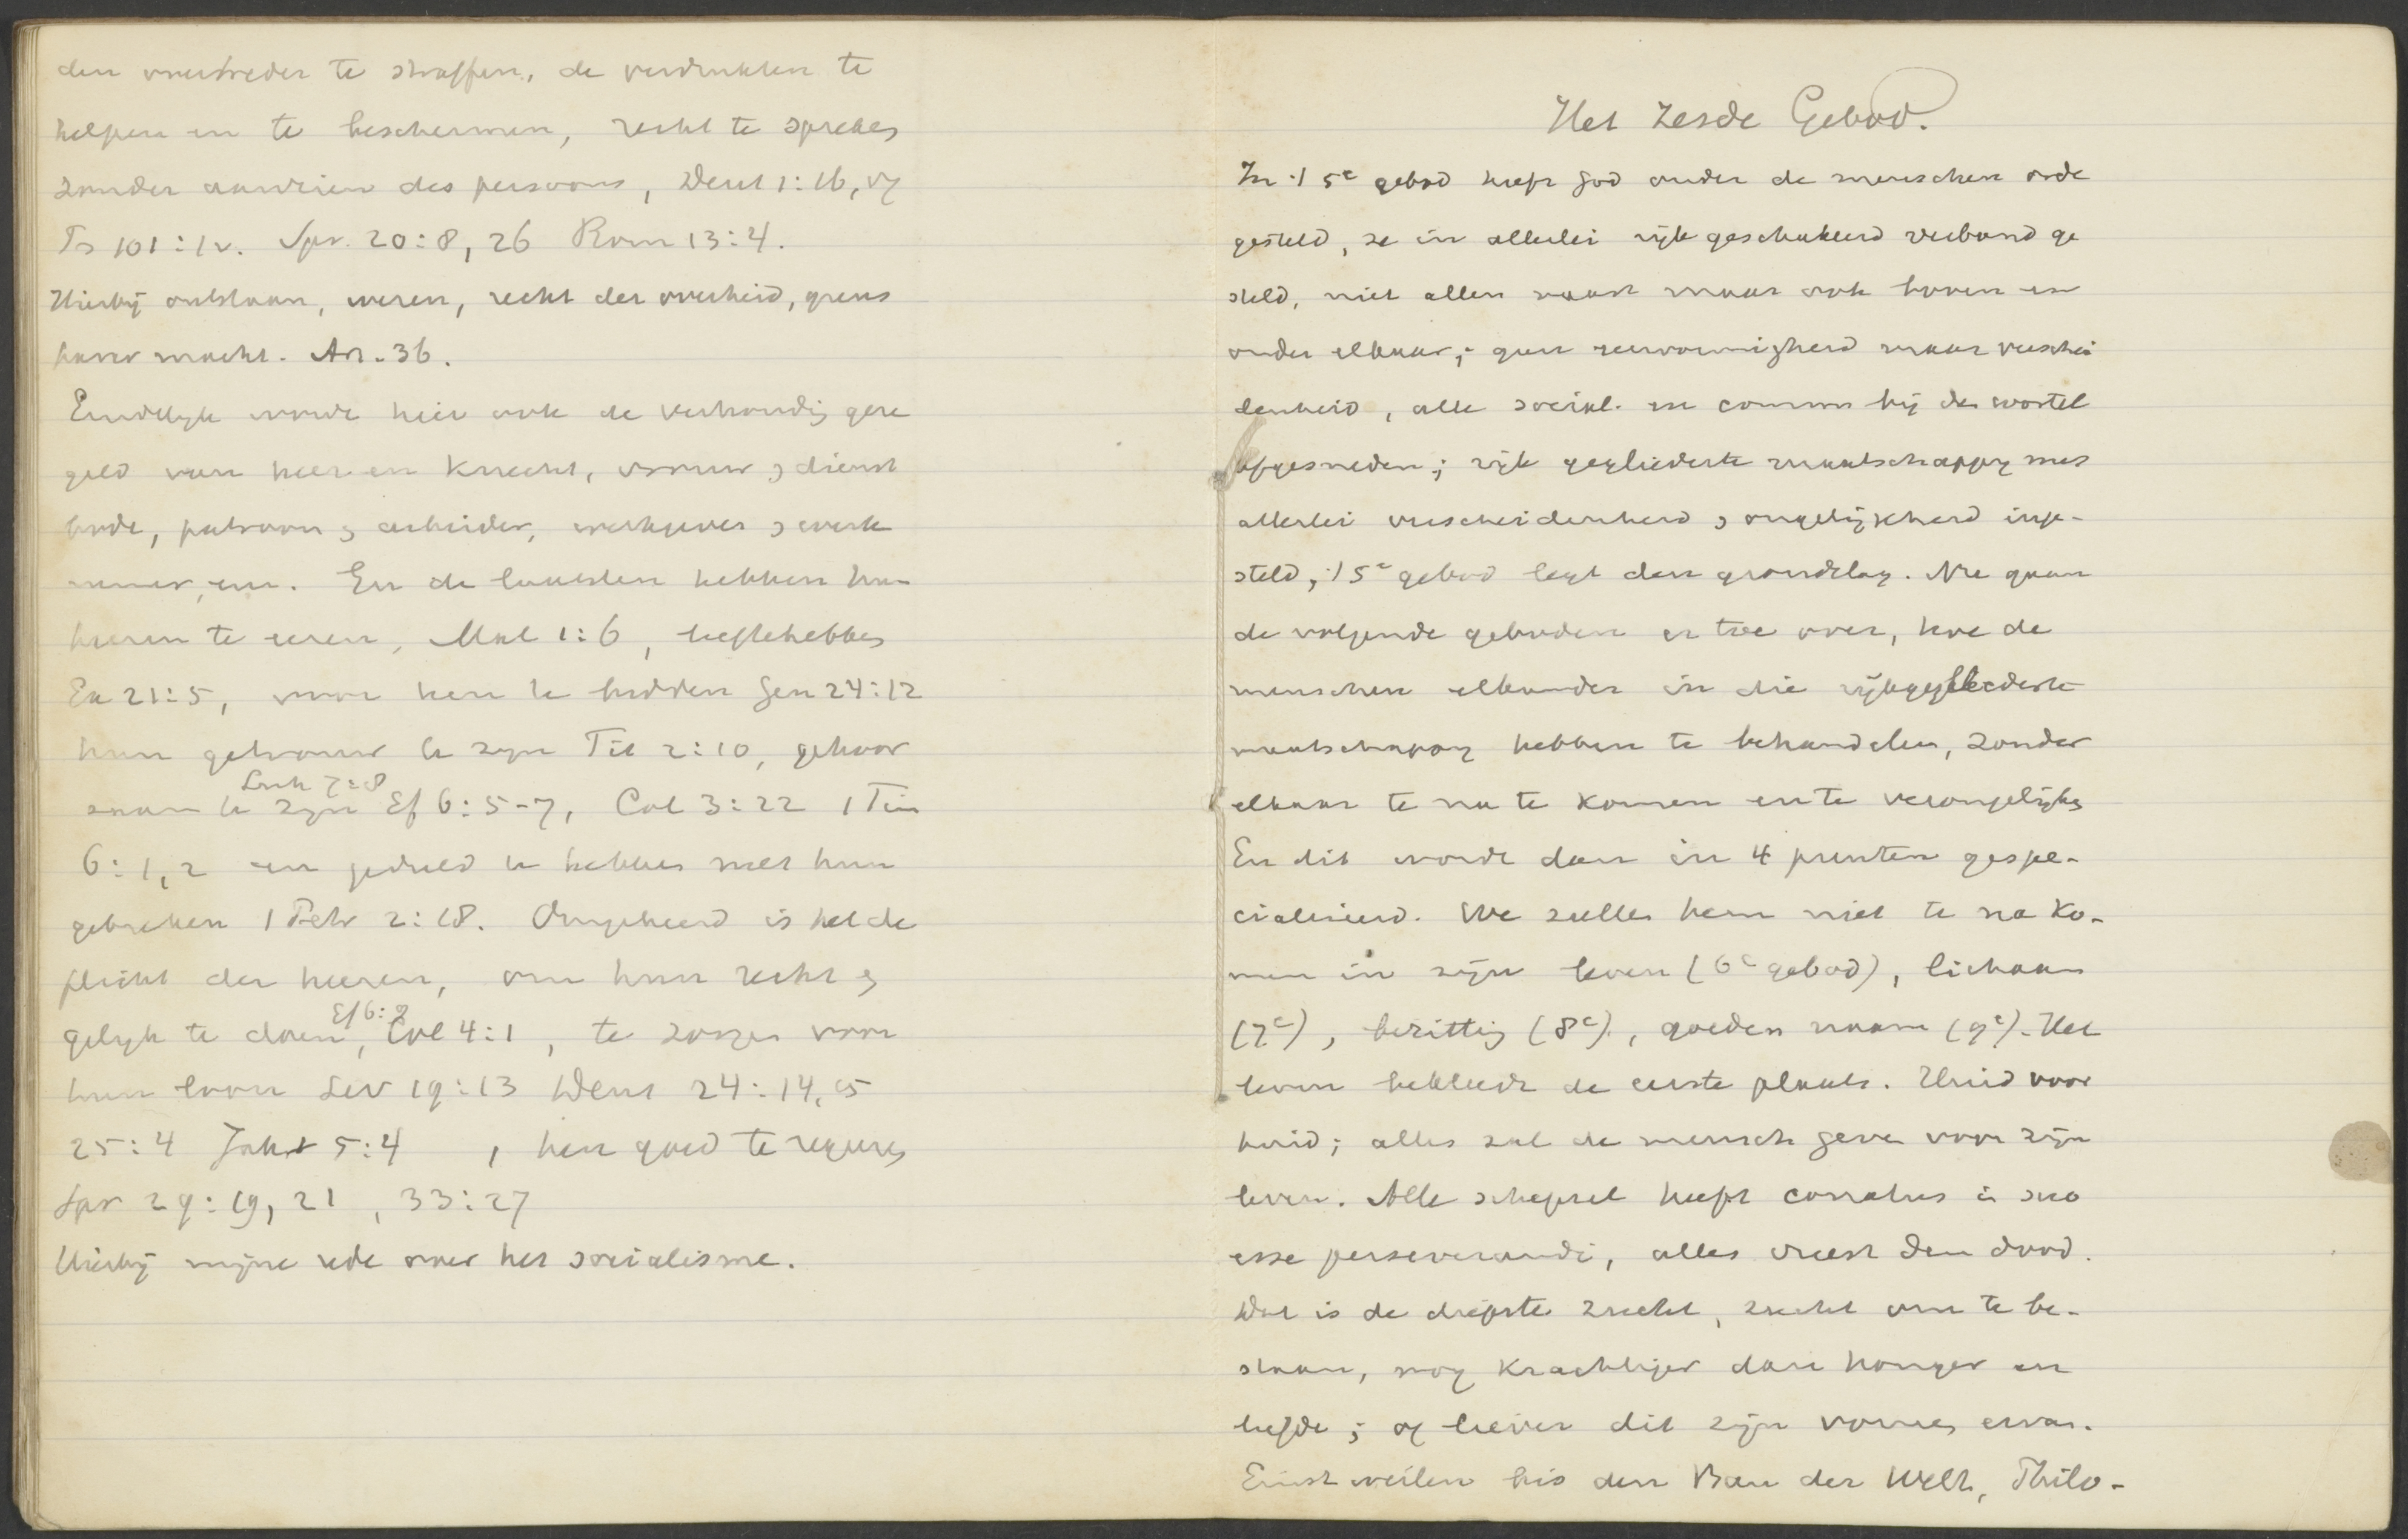 den overtreder te straffen, de verdrukten te
helpen en te beschermen, recht te spreken
zonder aanzien des persoons, Deut 1:16, 17
Ps 101:1v. Spr. 20:8, 26 Rom 13:4.
Hierbij ontslaan, weren, recht der overheid, grens
harer macht. Art. 36.
Eindelijk wordt hier ook de verhouding gere
geld van heer en knecht, vrouw en dienst
bode, patroon en arbeider, werkgever en werk
nemer, enz. En de laatsten hebben hun
heeren te eeren, Mal 1:6, liefhebben
Ex 21:5, voor hen te bidden Gen 24:12
hun getrouw te zijn Tit 2:10, gehoor
Luk 7:8
zaam te zijn Ef 6:5-7, Col 3:22 1 Tim
6:1,2 en geduld te hebben met hun
gebreken 1 Petr 2:18. Omgekeerd is het de
plicht der heeren, om hun recht en
Ef 6:9
gelijk te doen, Col 4:1, te zorgen voor
hun loon Lev 19:13 Deut 24:14, 15
25:4 Jak 5:4 , hen goed te regeren
Spr 29:19, 21, 33:27
Hierbij mijne rede over het socialisme.
Het zesde Gebod.
In 't 5e gebod heeft God onder de menschen orde
gesteld, ze in allerlei rijk geschakeerd verband ge
steld, niet alleen naast maar ook boven en
onder elkaar; geen eenvormigheid maar verschei
denheid, alle social. en comm. bij den wortel
afgesneden; rijk gegliederte maatschappij met
allerlei verscheidenheid en ongelijkheid inge-
steld, 't 5e gebod legt den grondslag. Nu gaan
de volgende geboden er toe over, hoe de
menschen elkander in die rijkgegliederte
maatschappij hebben te behandelen, zonder
elkaar te na te komen en te verongelijken
En dit wordt dan in 4 punten gespe-
cialiseerd. We zullen hem niet te na ko-
men in zijn leven (6e gebod), lichaam
(7e), bezitting (8e), goeden naam (9e). Het
leven bekleedt de eerste plaats. Huid voor
huid; alles zal de mensch geven voor zijn
leven. Alle schepsel heeft conatus in suo
esse perseverandi, alles vreest den dood.
Dat is de diepste zucht, zucht om te be-
staan, nog krachtiger dan honger en
liefde; of liever dit zijn vormen ervan.
Einstweilen bis den Bau der Welt, Philo-